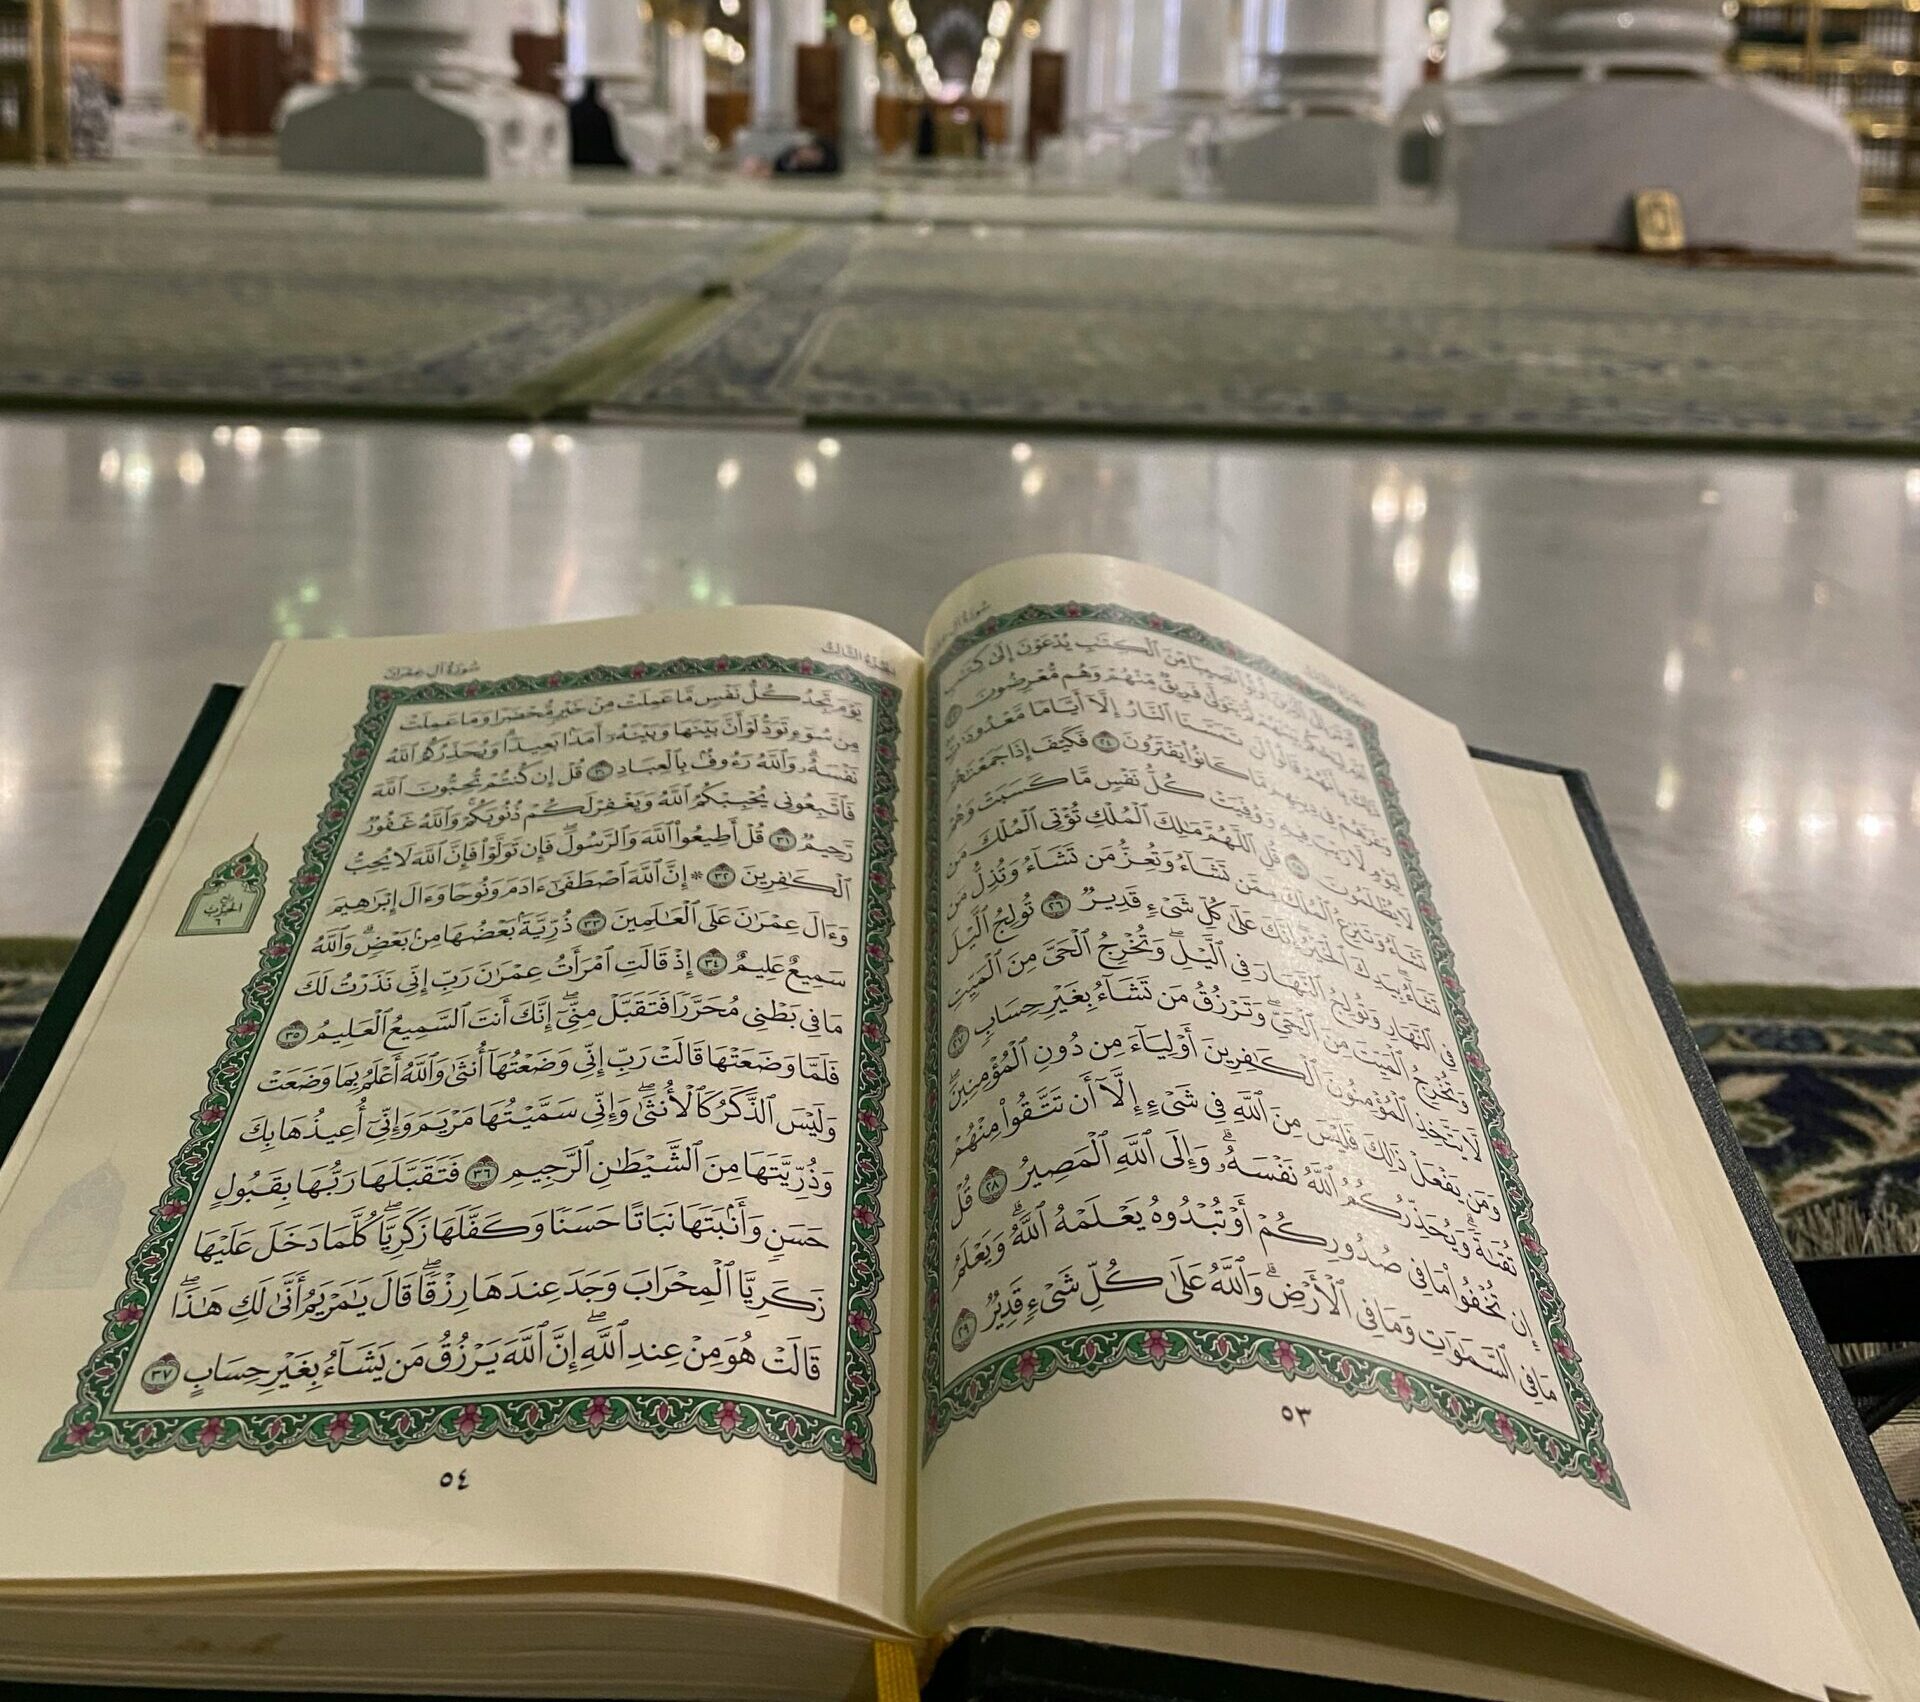 إِلَى ٱلَّذِينَ أُوتُوا۟ نَصِيبًا مِّنَ ٱلْكِتَٰبِ يُدْعَوْنَ إِلَىٰ كِتَٰبِ
لِيَحْكُمَ بَيْنَهُمْ ثُمَّ يَتَوَلَّىٰ فَرِيقٌ مِّنْهُمْ وَهُم مُّعْرِضُونَ
ذَٰلِكَ بِأَنَّهُمْ قَالُوا۟ لَن تَمَسَّنَا ٱلنَّارُ إِلَّآ أَيَّامًا مَّعْدُودَٰتٍ
وَغَرَّهُمْ فِى دِينِهِم مَّا كَانُوا۟ يَفْتَرُونَ ٢٤ فَكَيْفَ إِذَا جَمَعْنَٰهُمْ
لِيَوْمٍ لَّا رَيْبَ فِيهِ وَوُفِّيَتْ كُلُّ نَفْسٍ مَّا كَسَبَتْ وَهُمْ
لَا يُظْلَمُونَ ٢٥ قُلِ ٱللَّهُمَّ مَٰلِكَ ٱلْمُلْكِ تُؤْتِى ٱلْمُلْكَ مَن
تَشَآءُ وَتَنزِعُ ٱلْمُلْكَ مِمَّن تَشَآءُ وَتُعِزُّ مَن تَشَآءُ وَتُذِلُّ مَن
تَشَآءُۖ بِيَدِكَ ٱلْخَيْرُۖ إِنَّكَ عَلَىٰ كُلِّ شَىْءٍ قَدِيرٌ ٢٦ تُولِجُ ٱلَّيْلَ
فِى ٱلنَّهَارِ وَتُولِجُ ٱلنَّهَارَ فِى ٱلَّيْلِۖ وَتُخْرِجُ ٱلْحَىَّ مِنَ ٱلْمَيِّتِ
وَتُخْرِجُ ٱلْمَيِّتَ مِنَ ٱلْحَىِّۖ وَتَرْزُقُ مَن تَشَآءُ بِغَيْرِ حِسَابٍ ٢٧
لَّا يَتَّخِذِ ٱلْمُؤْمِنُونَ ٱلْكَٰفِرِينَ أَوْلِيَآءَ مِن دُونِ ٱلْمُؤْمِنِينَۖ
وَمَن يَفْعَلْ ذَٰلِكَ فَلَيْسَ مِنَ ٱللَّهِ فِى شَىْءٍ إِلَّآ أَن تَتَّقُوا۟ مِنْهُمْ
تُقَىٰةًۗ وَيُحَذِّرُكُمُ ٱللَّهُ نَفْسَهُۥۗ وَإِلَى ٱللَّهِ ٱلْمَصِيرُ ٢٨ قُلْ
إِن تُخْفُوا۟ مَا فِى صُدُورِكُمْ أَوْ تُبْدُوهُ يَعْلَمْهُ ٱللَّهُۗ وَيَعْلَمُ
مَا فِى ٱلسَّمَٰوَٰتِ وَمَا فِى ٱلْأَرْضِۗ وَٱللَّهُ عَلَىٰ كُلِّ شَىْءٍ قَدِيرٌ ٢٩
٥٣
الجزء الثالث
سورة آل عمران
يَوْمَ تَجِدُ كُلُّ نَفْسٍ مَّا عَمِلَتْ مِنْ خَيْرٍ مُّحْضَرًا وَمَا عَمِلَتْ
مِن سُوٓءٍ تَوَدُّ لَوْ أَنَّ بَيْنَهَا وَبَيْنَهُۥٓ أَمَدًۢا بَعِيدًاۗ وَيُحَذِّرُكُمُ ٱللَّهُ
نَفْسَهُۥۗ وَٱللَّهُ رَءُوفٌۢ بِٱلْعِبَادِ ٣٠ قُلْ إِن كُنتُمْ تُحِبُّونَ ٱللَّهَ
فَٱتَّبِعُونِى يُحْبِبْكُمُ ٱللَّهُ وَيَغْفِرْ لَكُمْ ذُنُوبَكُمْۗ وَٱللَّهُ غَفُورٌ
رَّحِيمٌ ٣١ قُلْ أَطِيعُوا۟ ٱللَّهَ وَٱلرَّسُولَۖ فَإِن تَوَلَّوْا۟ فَإِنَّ ٱللَّهَ لَا يُحِبُّ
ٱلْكَٰفِرِينَ ٣٢ * إِنَّ ٱللَّهَ ٱصْطَفَىٰٓ ءَادَمَ وَنُوحًا وَءَالَ إِبْرَٰهِيمَ
وَءَالَ عِمْرَٰنَ عَلَى ٱلْعَٰلَمِينَ ٣٣ ذُرِّيَّةًۢ بَعْضُهَا مِنۢ بَعْضٍۗ وَٱللَّهُ
سَمِيعٌ عَلِيمٌ ٣٤ إِذْ قَالَتِ ٱمْرَأَتُ عِمْرَٰنَ رَبِّ إِنِّى نَذَرْتُ لَكَ
مَا فِى بَطْنِى مُحَرَّرًا فَتَقَبَّلْ مِنِّىٓۖ إِنَّكَ أَنتَ ٱلسَّمِيعُ ٱلْعَلِيمُ ٣٥
فَلَمَّا وَضَعَتْهَا قَالَتْ رَبِّ إِنِّى وَضَعْتُهَآ أُنثَىٰ وَٱللَّهُ أَعْلَمُ بِمَا وَضَعَتْ
وَلَيْسَ ٱلذَّكَرُ كَٱلْأُنثَىٰۖ وَإِنِّى سَمَّيْتُهَا مَرْيَمَ وَإِنِّىٓ أُعِيذُهَا بِكَ
وَذُرِّيَّتَهَا مِنَ ٱلشَّيْطَٰنِ ٱلرَّجِيمِ ٣٦ فَتَقَبَّلَهَا رَبُّهَا بِقَبُولٍ
حَسَنٍ وَأَنۢبَتَهَا نَبَاتًا حَسَنًا وَكَفَّلَهَا زَكَرِيَّاۖ كُلَّمَا دَخَلَ عَلَيْهَا
زَكَرِيَّا ٱلْمِحْرَابَ وَجَدَ عِندَهَا رِزْقًاۖ قَالَ يَٰمَرْيَمُ أَنَّىٰ لَكِ هَٰذَاۖ
قَالَتْ هُوَ مِنْ عِندِ ٱللَّهِۖ إِنَّ ٱللَّهَ يَرْزُقُ مَن يَشَآءُ بِغَيْرِ حِسَابٍ ٣٧
الحزب
٦
٥٤